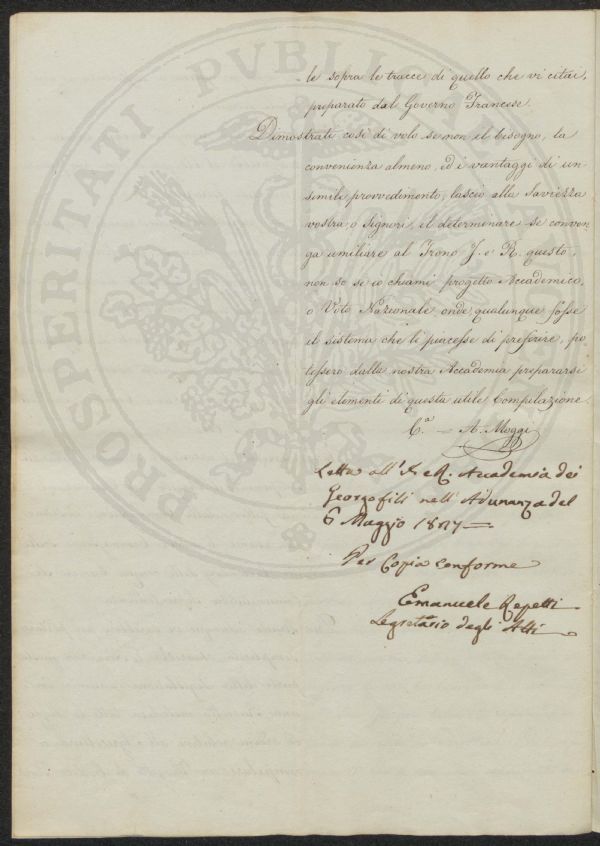 PROSPERITATI PVBLICAE
le sopra le tracce di quello che vi citai,
preparato dal Governo Francese.
Dimostrati così di volo se non il bisogno, la
convenienza almeno, ed i vantaggi di un
simile provvedimento, lascio alla Saviezza
vostra, o Signori, il determinare se conven,
ga umiliare al Trono I. e R. questo,
non so se io chiami progetto Accademico,
o Voto Nazionale, onde qualunque fosse
il sistema che li piacesse di preferire, po
tessero dalla nostra Accademia prepararsi
gli elementi di questa utile Compilazione
C.a = A. Moggi
Letta all' I. e R. Accademia dei
Georgofili nell' Adunanza del
6 Maggio
Per Copia conforme
Emanuele Repetti
Segretario degli Atti